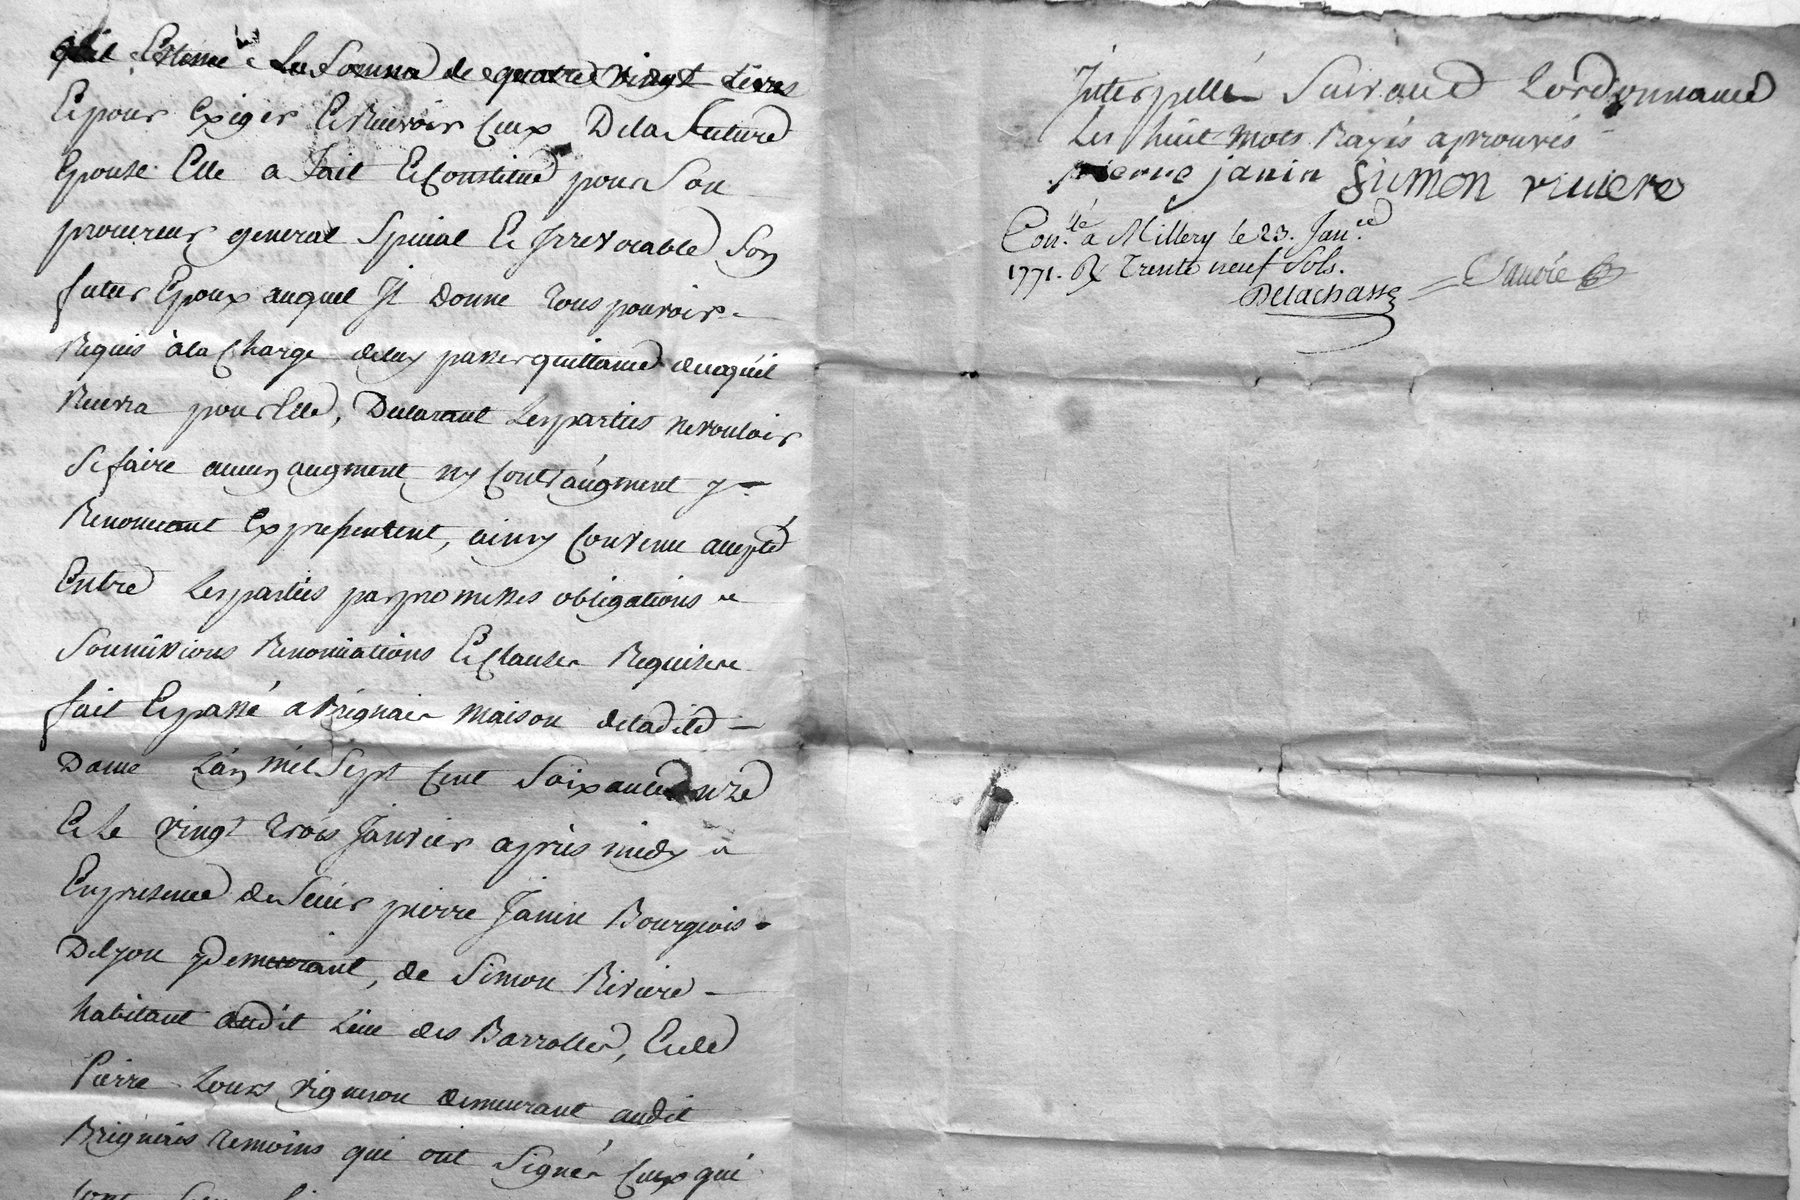 qu'il Estime a La Somme de quatre vingt Livres
Et pour Exiger Et Recevoir Ceux De la Future
Epouse Elle a Fait Et Constitué pour Son
procureur general Special Et Irrevocable Son
futur Epoux auquel Il Donne Tous pouvoir
Requis à la Charge deluy passer quittance decequéil
Recevra pour Elle, Declarant Les parties ne vouloir
Se faire aucun augment ny Contr'augment y
Renoncant Expressement, ainsy Convenu accepté
Entre Les parties par promesses obligations
Soumissions Renonciations Et Clauses Requises
fait Et passé a Brignais maison de ladite
Dame L'an mil Sept Cent Soixante onze
Et Le vingt Trois Janvier après midy
En presence de Sieur pierre Janin Bourgeois
De Lyon y Demeurant, de Simon Riviere
habitant audit Lieu des Barrolles, Et de
Pierre Louis vigneron demeurant audit
Brignais temoins qui ont Signés Ceux qui
Interpellé Suivant Lordonnance
Les huit mots Rayés aprouvés
pierre janin Simon riviere
Con.lé a Millery le 23. Jan.er
1771. Rx Trente neuf Sols.
Delachasse